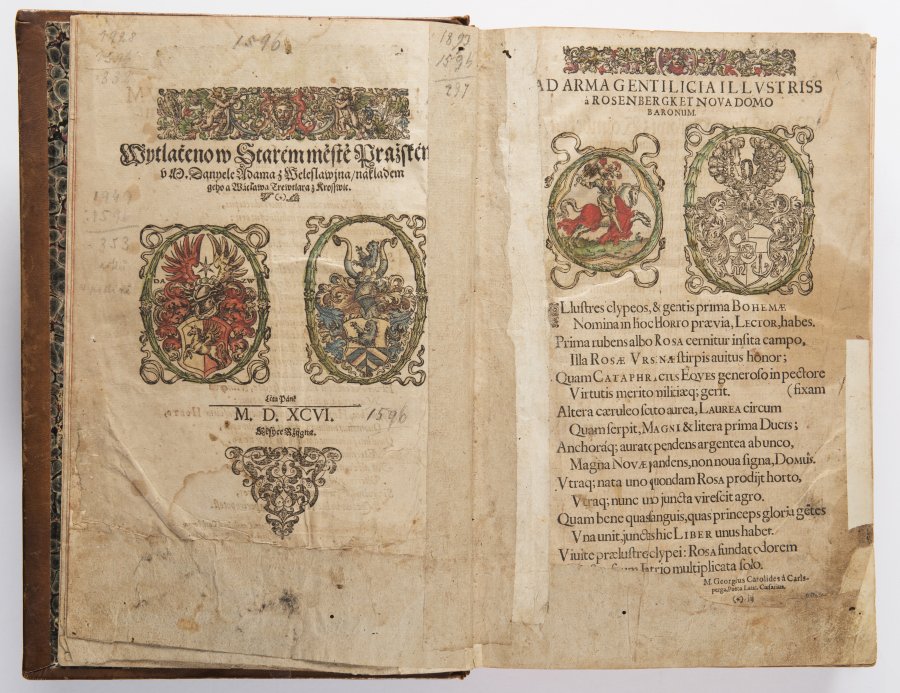 1828
1596
1596
Wytlačeno w Starém městě Pražském
v M. Danyele Adama z Weleslawjna / nákladem
geho a Wácława Trewtlara z Kroſſwic.
D A
Z W
1949
1596
353
Léta Páně
M. D. XCVI.
1596
1893
1596
297
AD ARMA GENTILICIA ILLVSTRISS
à ROSENBERGK ET NOVA DOMO
BARONUM.
ILluſtres clypeos, & gentis prima BOHEMÆ
Nomina in hoc HORTO prævia, LECTOR, habes.
Prima rubens albo ROSA cernitur inſita campo,
Illa ROSÆ VRSINÆ ſtirpis avitus honor;
Quam CATAPHRACTUS EQVES generoſo in pectore
Virtutis merito militiæq; gerit. (fixam
Altera cæruleo ſcuto aurea, LAUREA circum
Quam ſerpit, MAGNI & litera prima DUCIS;
Anchoráq; aurato pendens argentea ab unco,
Magna NOVÆ pandens, non noua ſigna, DOMUS.
Vtraq; nata uno quondam ROSA prodijt horto,
Vtraq; nunc uno juncta vireſcit agro.
Quam bene quas ſanguis, quas princeps gloria gētes
Vna unit, junctas hic LIBER unus habet.
Viuite prælustres clypei: ROSA fundat odorem
multiplicata ſolo.
M. Georgius Carolides à Carls-
perga, Poëta Laur. Cæſarius.